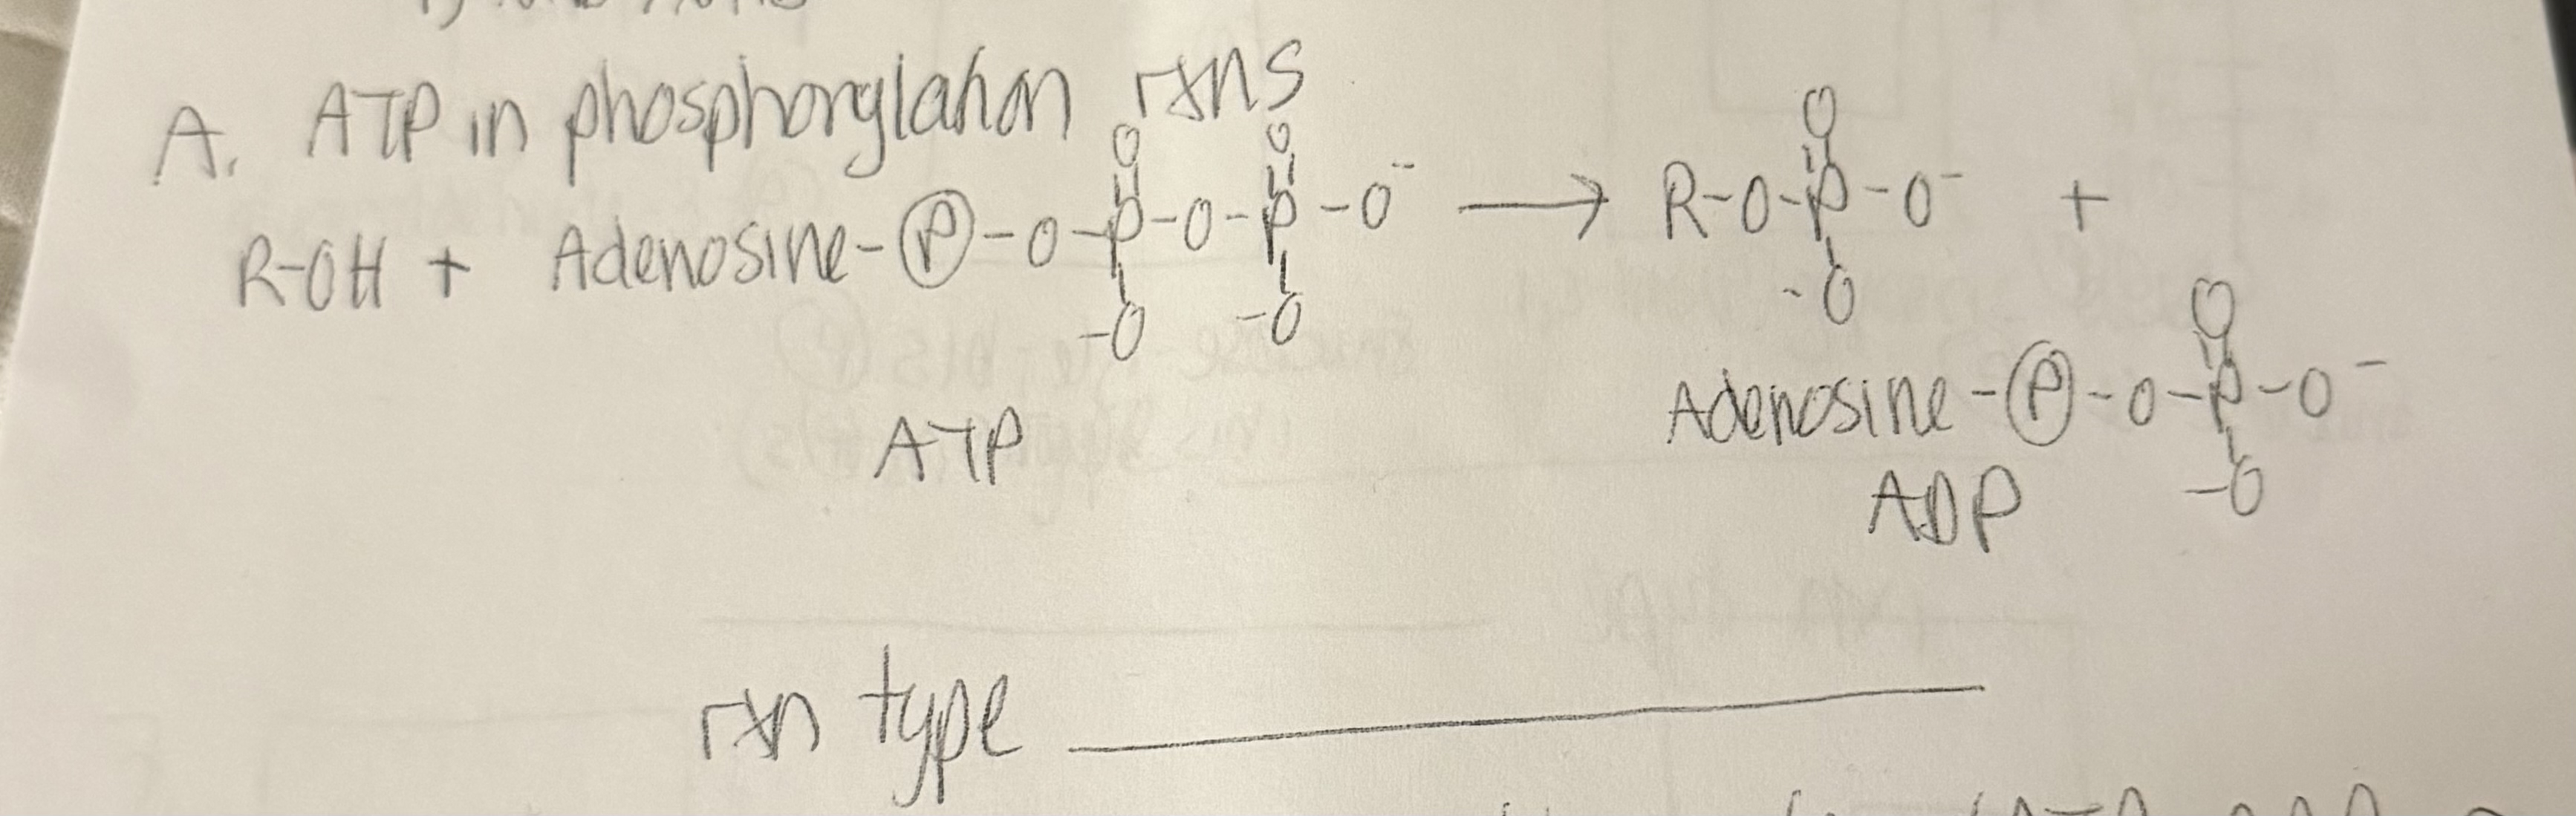 A. ATP in phosphorylation rxns
O O O
R-OH + Adenosine-P-O-P-O-P-O⁻ → R-O-P-O⁻ +
-O -O -O
O
Adenosine-P-O-P-O⁻
-O
ATP
ADP
rxn type